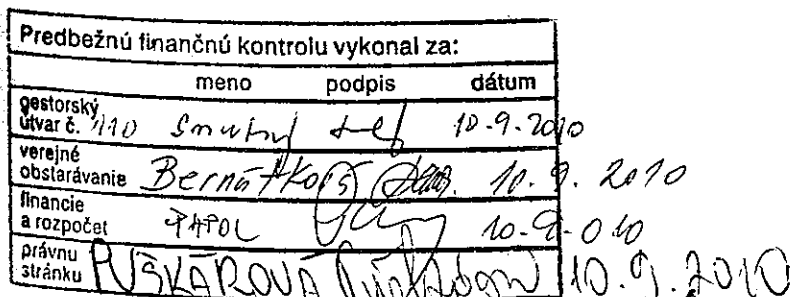 Predbežnú finančnú kontrolu vykonal za:
meno podpis dátum
gestorský
útvar č. 110 Smutný 10.9.2010
verejné
obstarávanie Bernátková 10.9.2010
financie
a rozpočet 10-9-010
právnu
stránku PUŠKÁROVÁ 10.9.2010